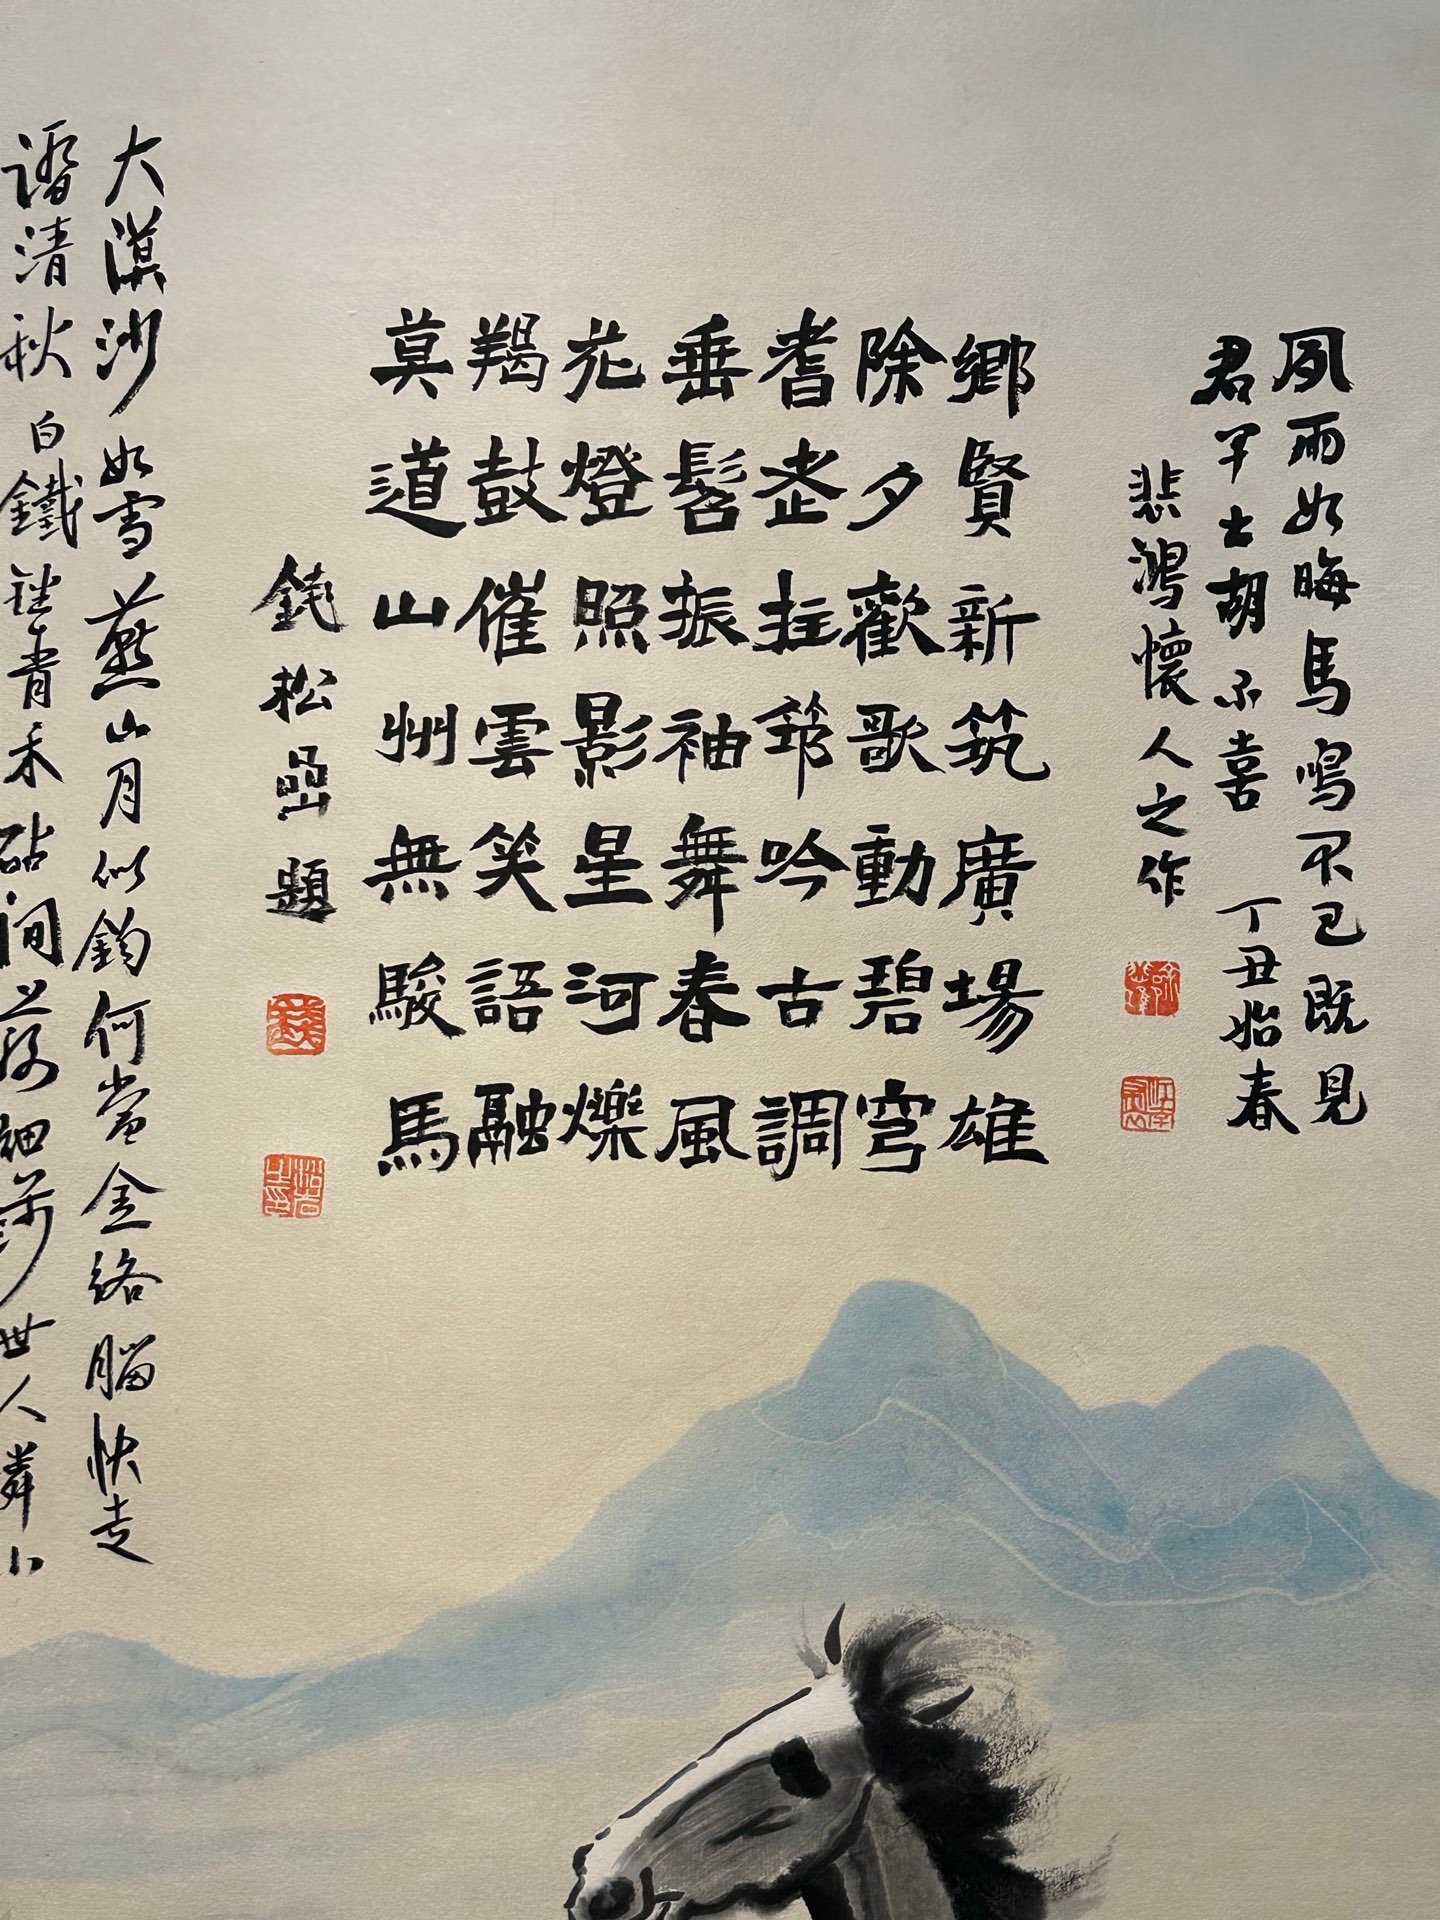 風雨如晦馬鳴不已既見
君子云胡不喜 丁丑始春
悲鴻懷人之作
鄉賢新筑廣場雄
除夕歡歌動碧穹
耆老拄筇吟古調
垂髫振袖舞春風
花燈照影星河爍
羯鼓催雲笑語融
莫道山州無駿馬
錢松嵒題
大漠沙如雪燕山月似鈎何當金絡腦快走
踏清秋 白鐵銼青禾砧間落細莎世人憐小